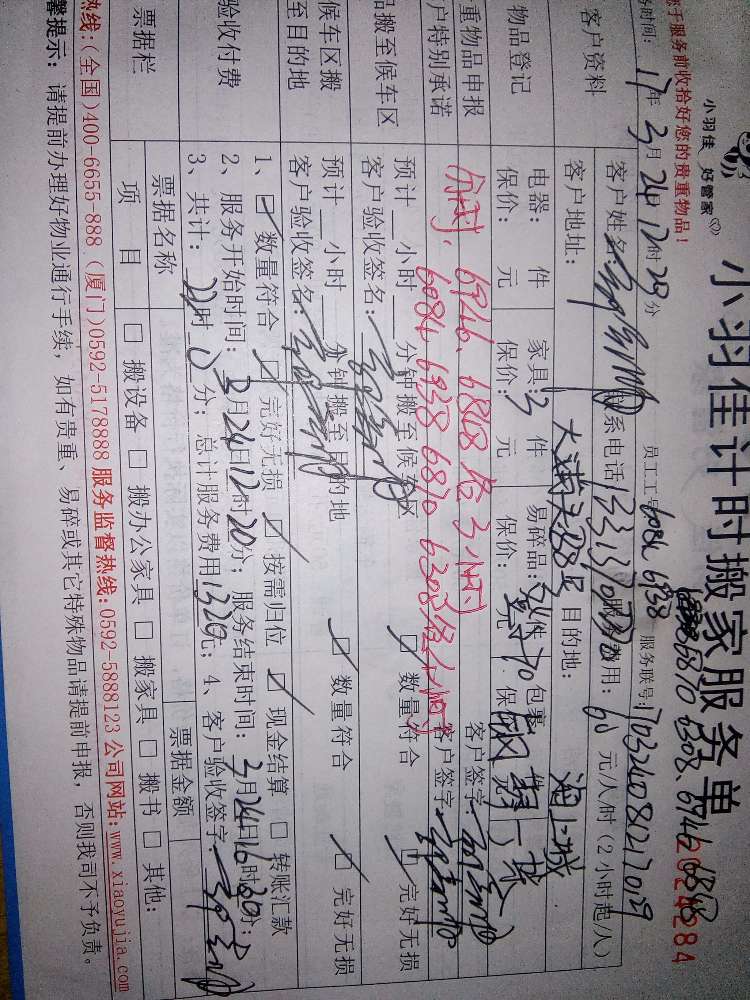 小羽佳 好管家
小羽佳计时搬家服务单
2024284
您于服务前收拾好您的贵重物品!
务时间: 17年3月24日12时20分
员工工号 6084 6938 6810 6308、6746 6848
服务联号: 70324081217029
客户资料
客户姓名
系电话
服务费用: 60元/人/时(2小时起/人)
客户地址:
目的地: 海上城
物品登记
电器: 件 家具: 3件 易碎品: 件 包裹
保价: 元 保价: 元 保价: 元 保
重物品申报
户特别承诺
分时、6746、6848各3小时
6084 6938 6810 6308各4小时
客户签字:
客户签字
品搬至候车区
预计__小时__分钟搬至候车区
☑ 数量符合 ☑ 完好无损
客户验收签名:
候车区搬
至目的地
预计__小时__分钟搬至目的地
☑ 数量符合 ☑ 完好无损
客户验收签名:
验收付费
1、☑ 数量符合 ☑ 完好无损 ☑ 按需归位 ☑ 现金结算 □ 转账汇款
2、服务开始时间: 3月24日12时20分; 服务结束时间: 3月24日16时20分;
3、共计: 22时0分; 总计服务费用1320元; 4、客户验收签字:
票据栏
票据名称
票据金额
项 目
□ 搬设备 □ 搬办公家具 □ 搬家具 □ 搬书 □ 其他:
热线:(全国)400-6655-888 (厦门)0592-5178888 服务监督热线:0592-5888123 公司网站:www.xiaoyujia.com
馨提示: 请提前办理好物业通行手续, 如有贵重、易碎或其它特殊物品请提前申报, 否则我司不予负责。